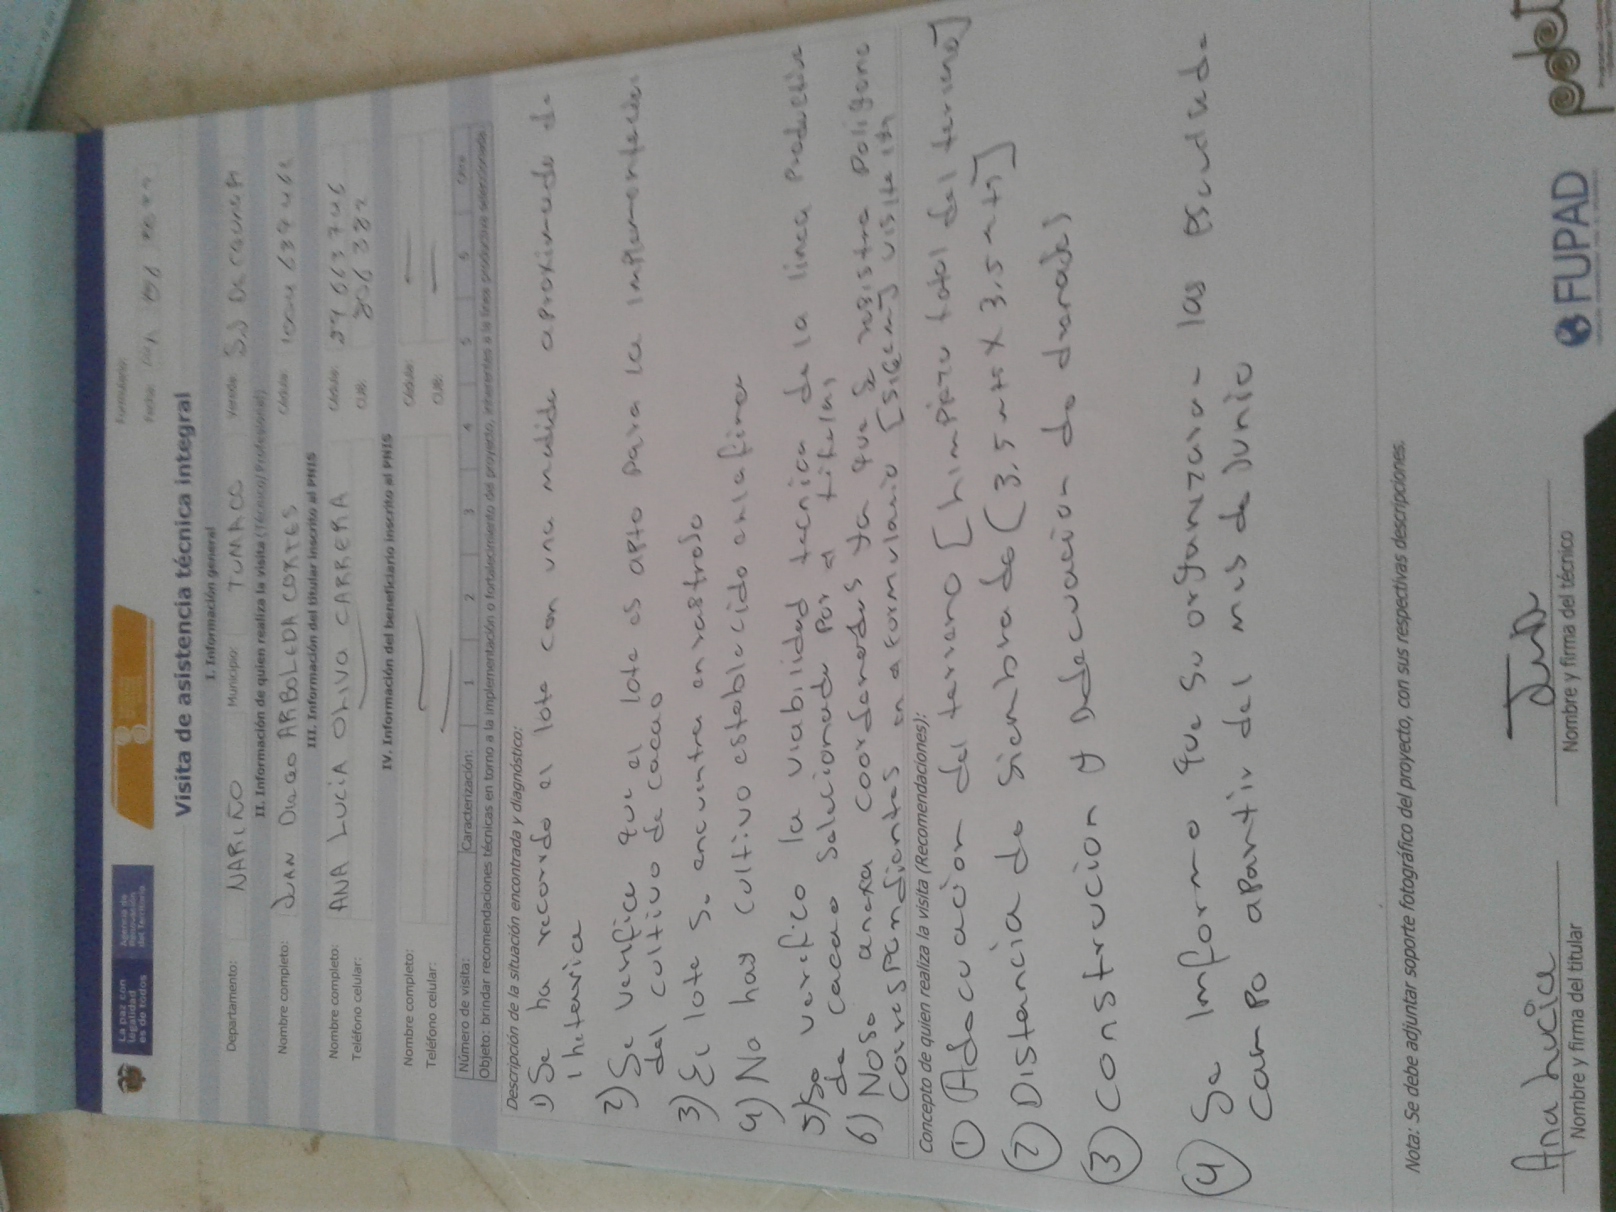 La paz con
legalidad
es de todos
Agencia de
Renovación
del Territorio
Formulario:
Fecha:
Visita de asistencia técnica integral
I. Información general
Departamento: NARIÑO Municipio: TUMACO Vereda:
II. Información de quien realiza la visita (Técnico/Profesional)
Nombre completo: JUAN DIEGO ARBOLEDA CORTES Cédula:
III. Información del titular inscrito al PNIS
Nombre completo: ANA LUCIA OLIVA CARRERA Cédula:
Teléfono celular: CUB: 806382
IV. Información del beneficiario inscrito al PNIS
Nombre completo: Cédula:
Teléfono celular: CUB:
Número de visita: Caracterización: 1 2 3 4 5 6 Otra
Objeto: brindar recomendaciones técnicas en torno a la implementación o fortalecimiento del proyecto, inherentes a la línea productiva seleccionada.
Descripción de la situación encontrada y diagnóstico:
1) Se ha recordo el lote con una medida aproximada de
1 hetarica
2) Se verifica que el lote es apto para la implementacion
del cultivo de cacao
3) El lote se encuentra enrastrojo
4) No hay cultivo establecido en la finca
5) Se verefico la viabilidad tecnica de la linea productiva
de cacao selecionada por el titular
6) No se anexa coordenadas ya que se registra poligono
correspondientes en formulario [Sigem] visita
Concepto de quien realiza la visita (Recomendaciones):
① Adecuacion del terreno [Limpieza total del terreno]
② Distancia de siembra de (3.5 mts X 3.5 mts)
③ Construcion y Adecuacion de drenades
④ Se informo que se organizaran las escuela de
campo apartir del mes de Junio
Nota: Se debe adjuntar soporte fotográfico del proyecto, con sus respectivas descripciones.
Ana Lucia
Nombre y firma del titular
Nombre y firma del técnico
FUPAD
pdet